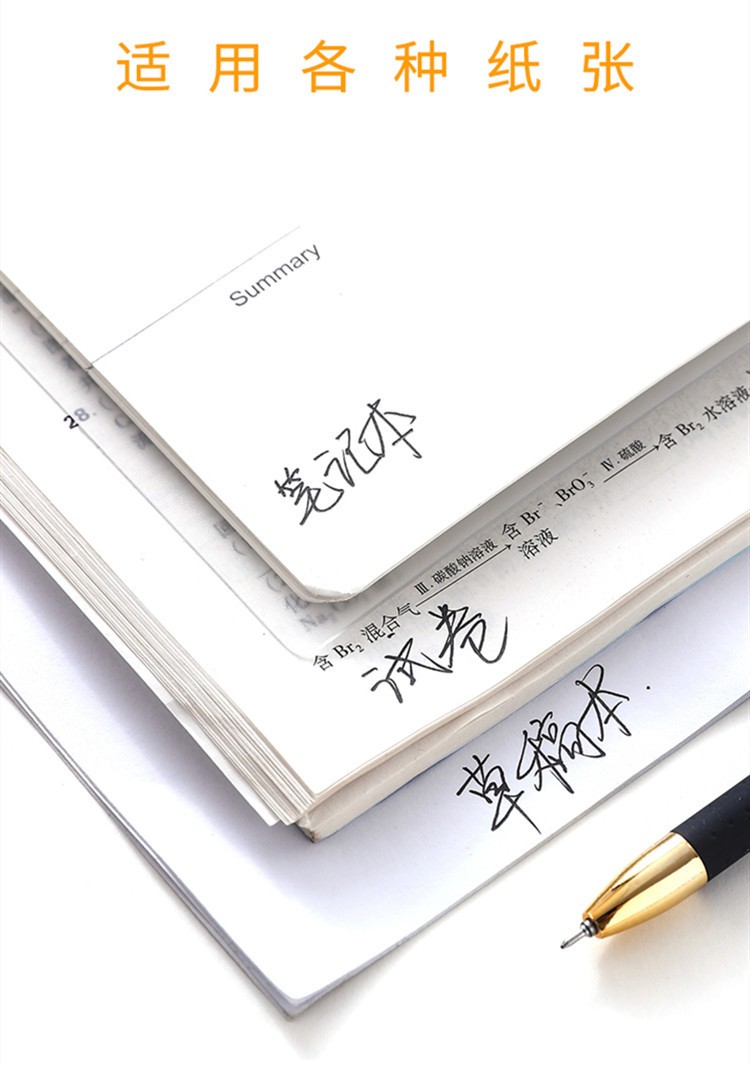 适用各种纸张
Summary
笔记本
28.
含 Br₂ 混合气 Ⅲ.碳酸钠溶液 含 Br⁻、BrO₃⁻ Ⅳ.硫酸 含 Br₂ 水溶液
溶液
试卷
草稿本.